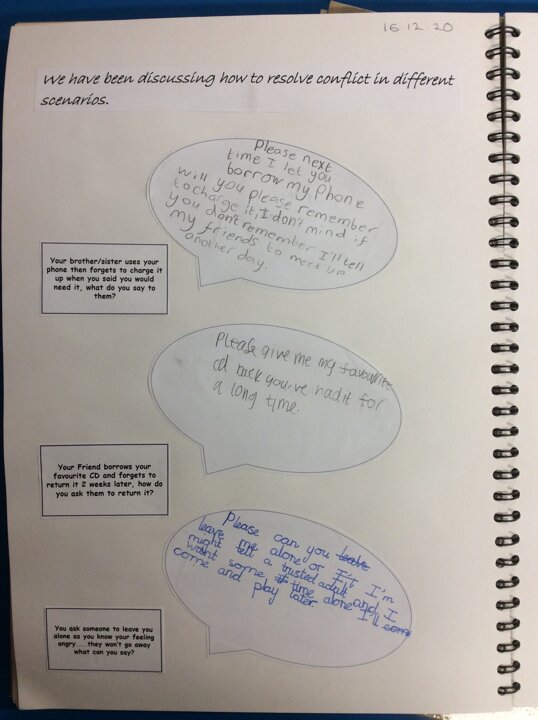 16.12.20
We have been discussing how to resolve conflict in different
scenarios.
Please next
time I let you
borrow my Phone
will you please remember
to charge it, I don't mind if
you don't remember I'll tell
my friends to meet up
another day.
Your brother/sister uses your
phone then forgets to charge it
up when you said you would
need it, what do you say to
them?
Please give me my favourite
cd back you've had it for
a long time.
Your Friend borrows your
favourite CD and forgets to
return it 2 weeks later, how do
you ask them to return it?
Please can you leave
leave me alone or I'm
might tell a trusted adult and I
want some time alone I'll come
come and play later
You ask someone to leave you
alone as you know your feeling
angry....they won't go away
what can you say?